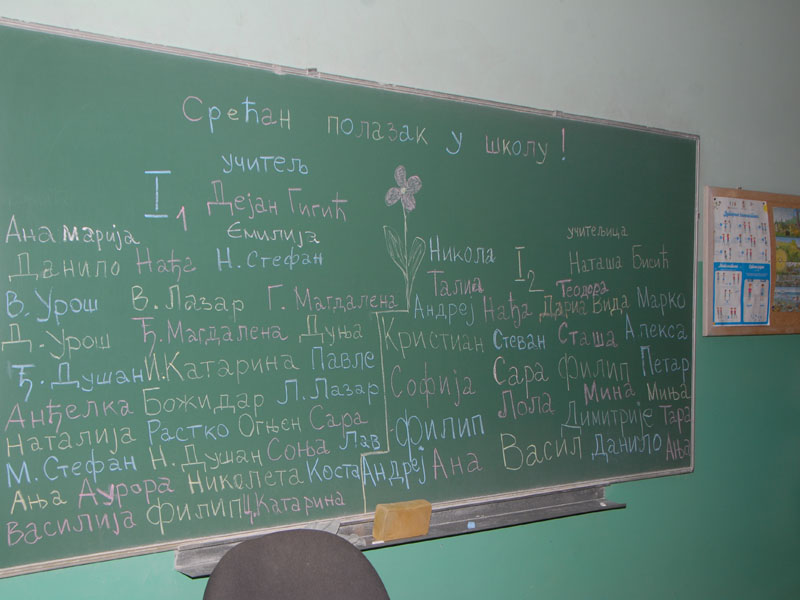 Срећан полазак у школу!
I1
учитељ
Дејан Гигић
Ана марија Емилија
Данило Нађа Н. Стефан
В. Урош В. Лазар Г. Магдалена
Д. Урош Ђ. Магдалена Дуња
Ђ. Душан И. Катарина Павле
Анђелка Божидар Л. Лазар
Наталија Растко Огњен Сара
М. Стефан Н. Душан Соња Лав
Ања Аурора Николета Коста
Василија Филип Ц. Катарина
I2
учитељица
Наташа Бисић
Никола
Талиа Теодора
Андреј Нађа Дариа Вида Марко
Кристиан Стеван Сташа Алекса
Софија Сара Филип Петар
Лола Мина Миња
Филип Димитрије Тара
Андреј Ана Васил Данило Ања